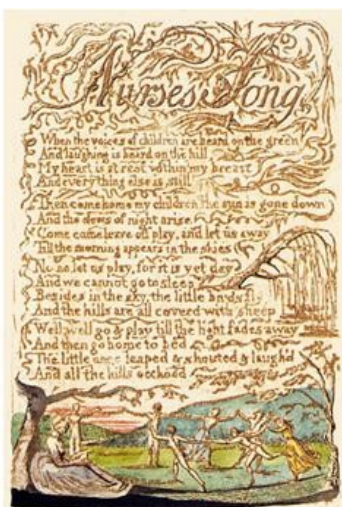 Nurses Song
When the voices of children are heard on the green
And laughing is heard on the hill
My heart is at rest within my breast
And everything else is still
Then come home my children the sun is gone down
And the dews of night arise
Come come leave off play, and let us away
Till the morning appears in the skies
No no let us play, for it is yet day
And we cannot go to sleep
Besides in the sky, the little birds fly
And the hills are all coverd with sheep
Well well go & play till the light fades away
And then go home to bed
The little ones leaped & shouted & laugh'd
And all the hills ecchoed